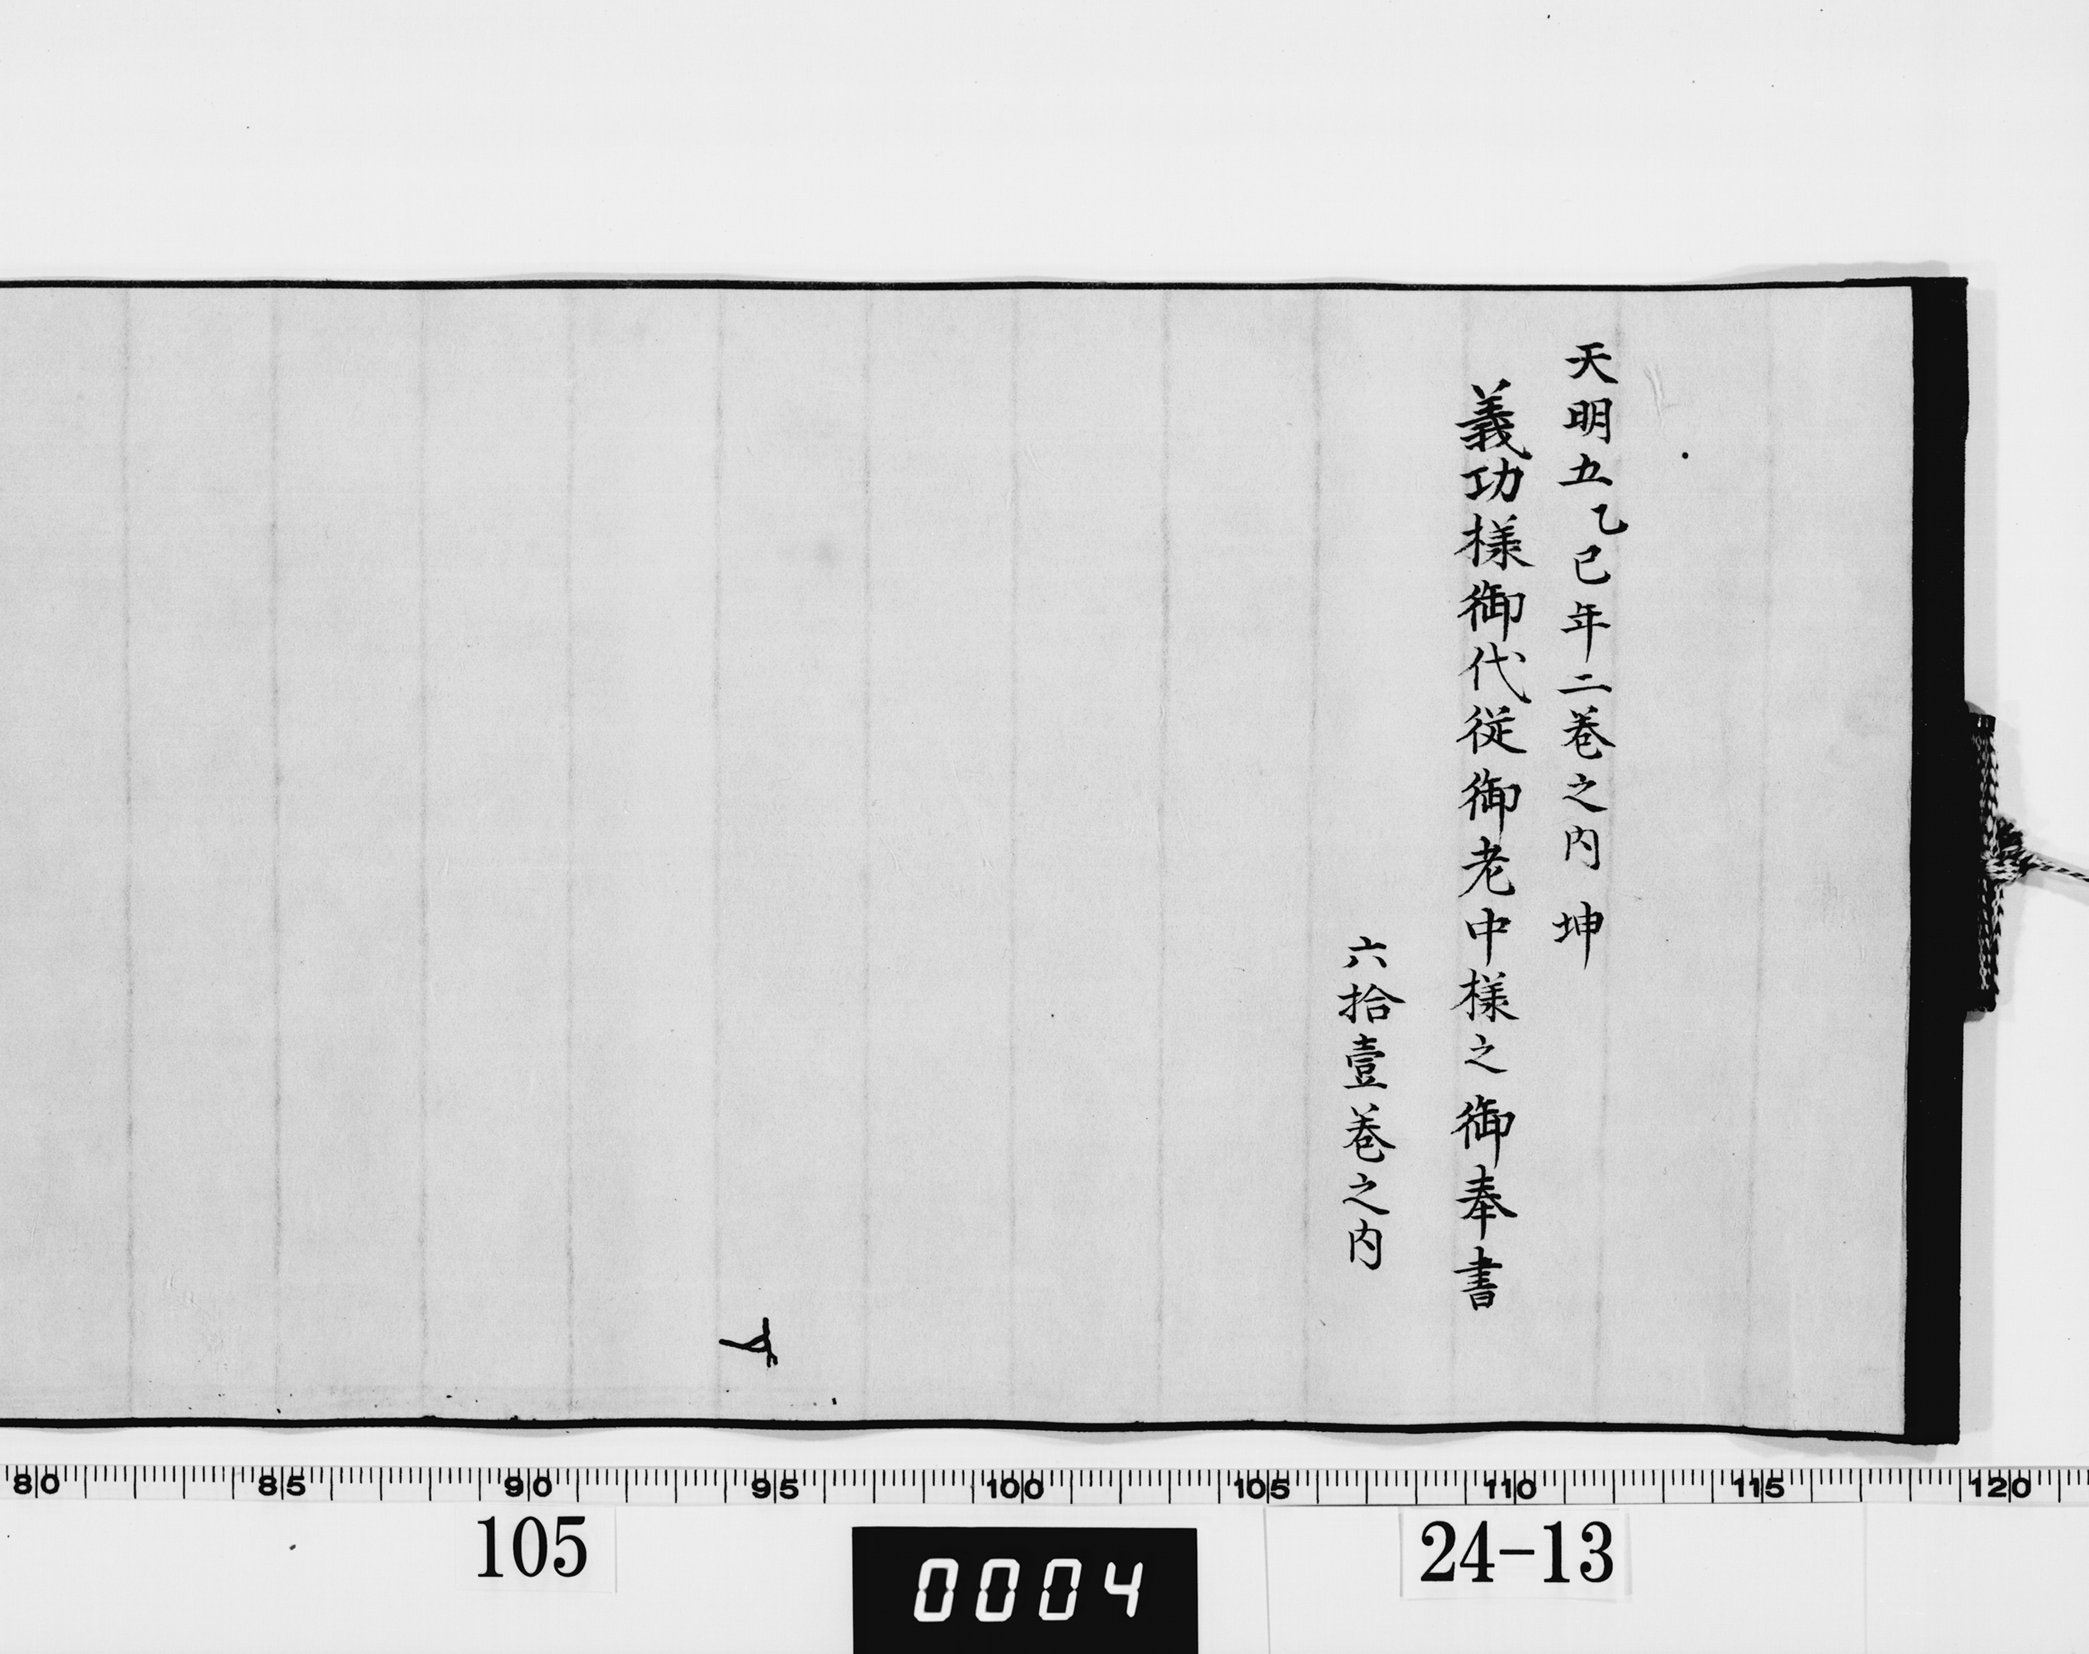 天明五乙巳年二巻之内 坤
義功様御代従御老中様之御奉書
六拾壹巻之内
80 85 90 95 100 105 110 115 120
105
24-13
0004